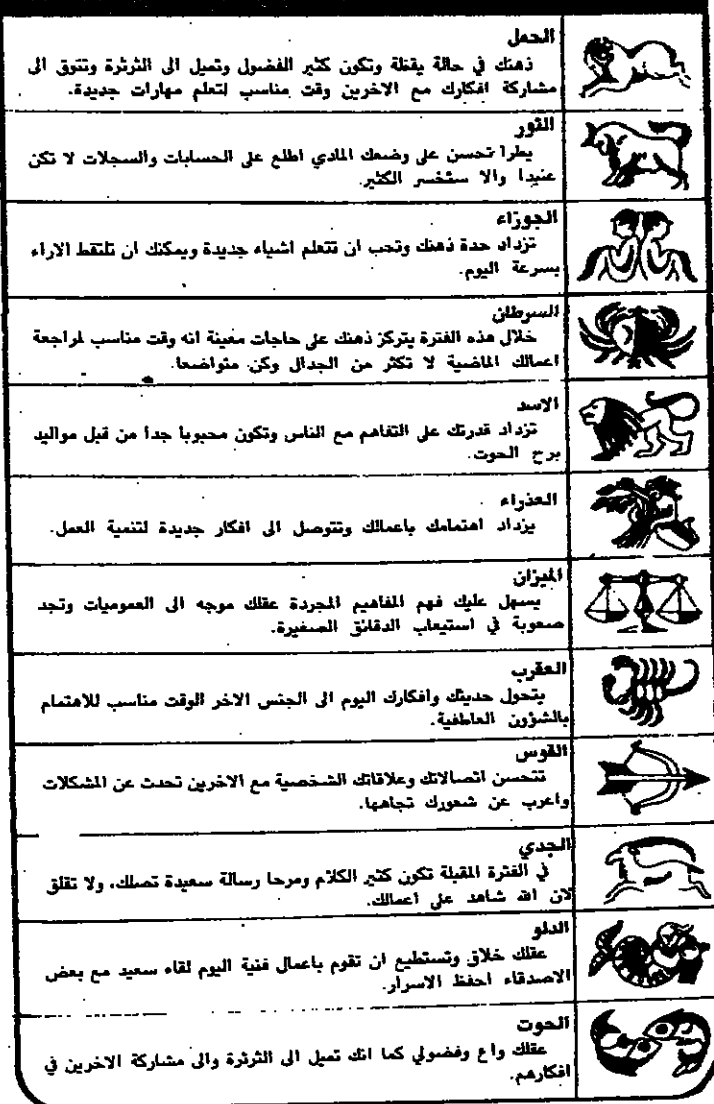 الحمل
ذهنك في حالة يقظة وتكون كثير الفضول وتميل الى الثرثرة وتتوق الى
مشاركة افكارك مع الاخرين وقت مناسب لتعلم مهارات جديدة.
الثور
يطرا تحسن على وضعك المادي اطلع على الحسابات والسجلات لا تكن
عنيدا والا ستخسر الكثير.
الجوزاء
تزداد حدة ذهنك وتحب ان تتعلم اشياء جديدة ويمكنك ان تلتقط الاراء
بسرعة اليوم.
السرطان
خلال هذه الفترة يتركز ذهنك على حاجات معينة انه وقت مناسب لمراجعة
اعمالك الماضية لا تكثر من الجدال وكن متواضعا.
الاسد
تزداد قدرتك على التفاهم مع الناس وتكون محبوبا جدا من قبل مواليد
برج الحوت.
العذراء
يزداد اهتمامك باعمالك وتتوصل الى افكار جديدة لتنمية العمل.
الميزان
يسهل عليك فهم المفاهيم المجردة عقلك موجه الى العموميات وتجد
صعوبة في استيعاب الدقائق الصغيرة.
العقرب
يتحول حديثك وافكارك اليوم الى الجنس الاخر الوقت مناسب للاهتمام
بالشؤون العاطفية.
القوس
تتحسن اتصالاتك وعلاقاتك الشخصية مع الاخرين تحدث عن المشكلات
واعرب عن شعورك تجاهها.
الجدي
في الفترة المقبلة تكون كثير الكلام ومرحا رسالة سعيدة تصلك، ولا تقلق
لان الله شاهد على اعمالك.
الدلو
عقلك خلاق وتستطيع ان تقوم باعمال فنية اليوم لقاء سعيد مع بعض
الاصدقاء احفظ الاسرار.
الحوت
عقلك واع وفضولي كما انك تميل الى الثرثرة والى مشاركة الاخرين في
افكارهم.